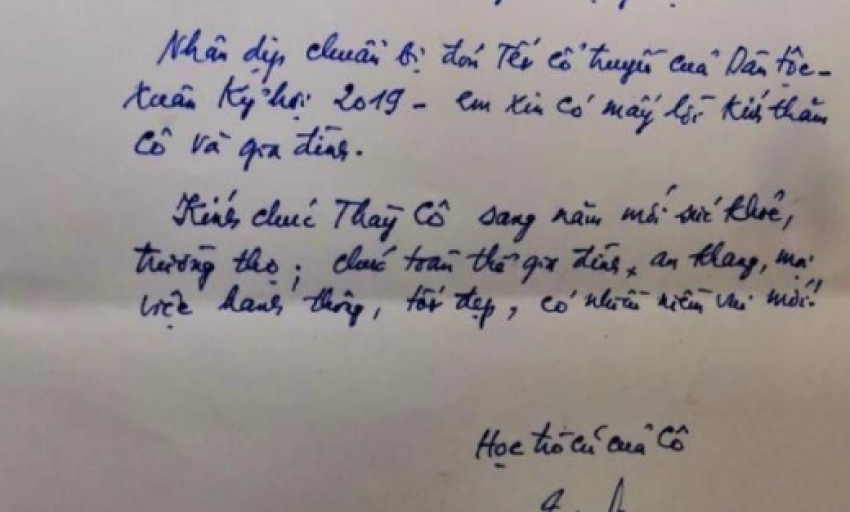 Nhân dịp chuẩn bị đón Tết cổ truyền của Dân tộc -
Xuân Kỷ hợi 2019 - em xin có mấy lời kính thăm
Cô và gia đình.
Kính chúc Thầy Cô sang năm mới sức khỏe,
trường thọ; chúc toàn thể gia đình, an khang, mọi
việc hanh thông, tốt đẹp, có nhiều niềm vui mới!
Học trò cũ của Cô